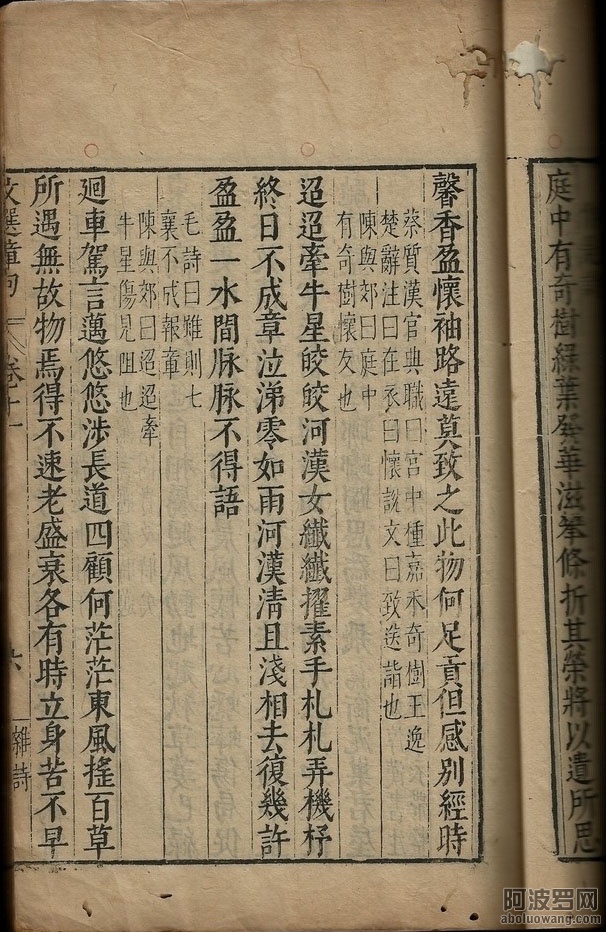 庭中有奇樹綠葉發華滋攀條折其榮將以遺所思
馨香盈懷袖路遠莫致之此物何足貢但感別經時
蔡質漢官典職曰宮中種嘉禾奇樹王逸
楚辭注曰在衣曰懷說文曰致送詣也
陳與郊曰庭中
有奇樹懷友也
迢迢牽牛星皎皎河漢女纖纖擢素手札札弄機杼
終日不成章泣涕零如雨河漢清且淺相去復幾許
盈盈一水間脉脉不得語
毛詩曰雖則七
襄不成報章
陳與郊曰迢迢牽
牛星傷見阻也
廻車駕言邁悠悠涉長道四顧何茫茫東風搖百草
所遇無故物焉得不速老盛衰各有時立身苦不早
文選章句 卷十一 六 雜詩
阿波罗网
aboluowang.com